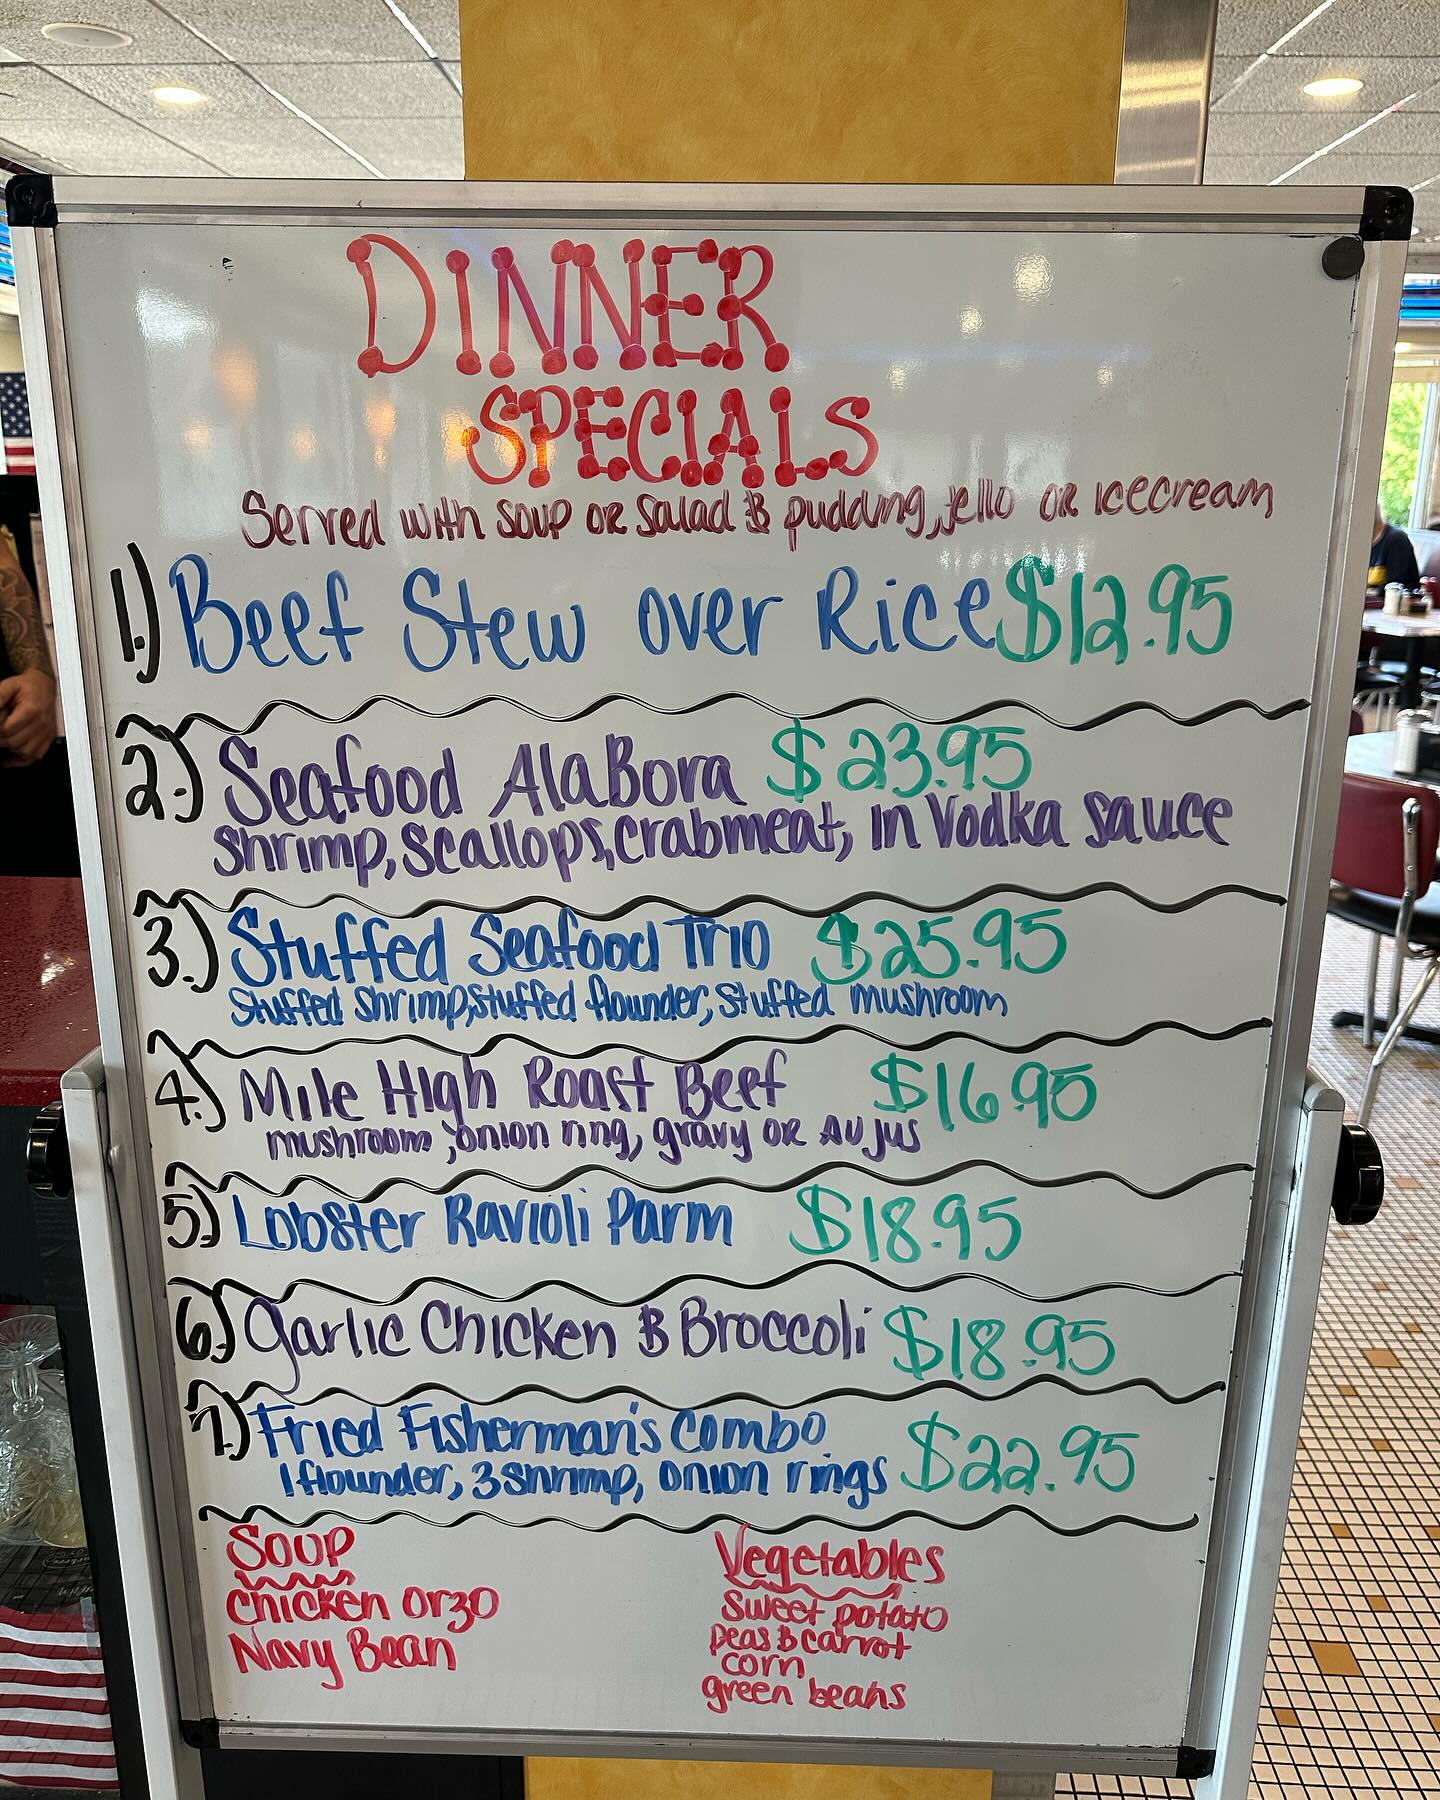 DINNER
SPECIALS
Served with soup or salad & pudding, jello or icecream
1.) Beef Stew over Rice $12.95
2.) Seafood AlaBora $23.95
Shrimp, Scallops, Crabmeat, in Vodka sauce
3.) Stuffed Seafood Trio $25.95
Stuffed Shrimp, stuffed flounder, stuffed mushroom
4.) Mile High Roast Beef $16.95
mushroom, onion ring, gravy or AU jus
5.) Lobster Ravioli Parm $18.95
6.) Garlic Chicken & Broccoli $18.95
7.) Fried Fisherman's Combo $22.95
1 flounder, 3 shrimp, onion rings
Soup
Chicken Orzo
Navy Bean
Vegetables
Sweet potato
Peas & carrot
corn
green beans